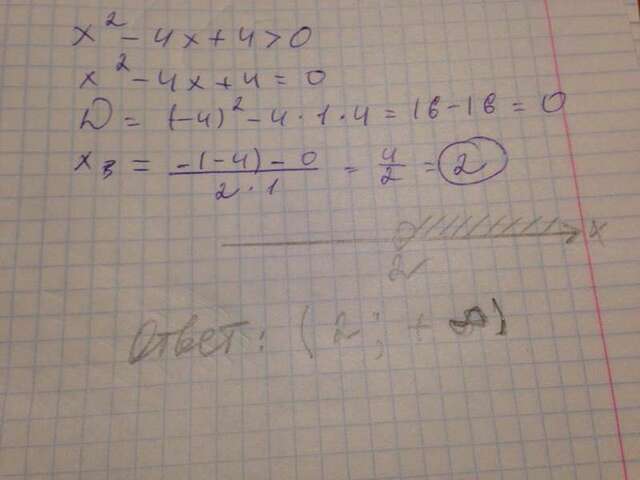 x² - 4x + 4 > 0
x² - 4x + 4 = 0
D = (-4)² - 4 · 1 · 4 = 16 - 16 = 0
x₃ = -(-4) - 0 / 2 · 1 = 4/2 = 2
x
2
Ответ: (2; + ∞)